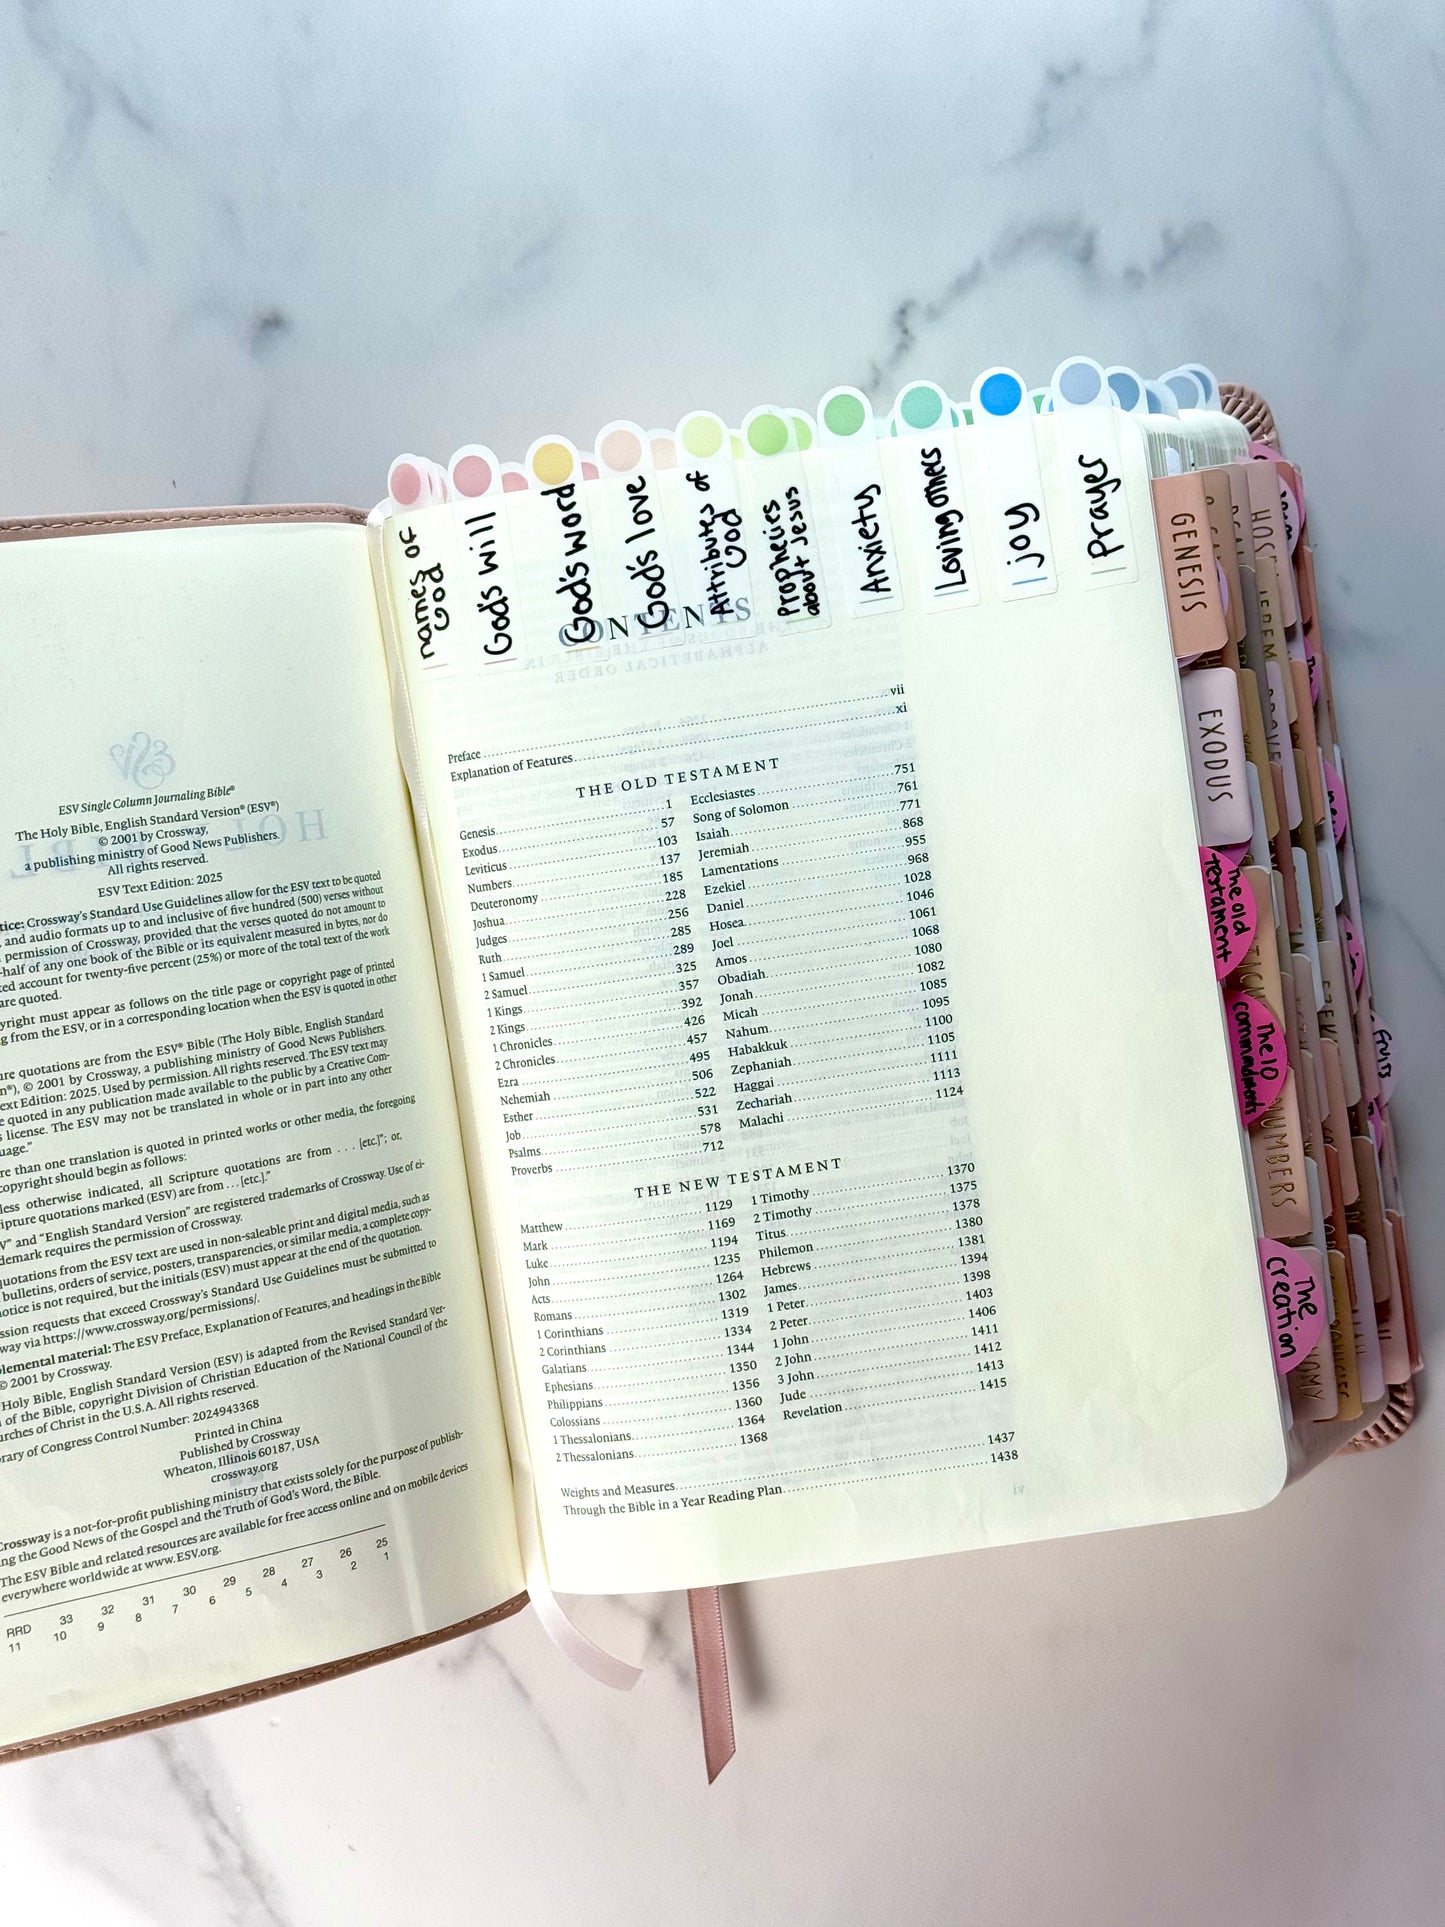 names of
God
God's will
God's word
God's love
Attributes of
God
Prophecies
about Jesus
Anxiety
Loving others
joy
prayer
ESV Single Column Journaling Bible®
The Holy Bible, English Standard Version® (ESV®)
© 2001 by Crossway,
a publishing ministry of Good News Publishers.
All rights reserved.
ESV Text Edition: 2025
Crossway's Standard Use Guidelines allow for the ESV text to be quoted
and audio formats up to and inclusive of five hundred (500) verses without
permission of Crossway, provided that the verses quoted do not amount to
half of any one book of the Bible or its equivalent measured in bytes, nor do
account for twenty-five percent (25%) or more of the total text of the work
are quoted.
must appear as follows on the title page or copyright page of printed
from the ESV, or in a corresponding location when the ESV is quoted in other
are quotations are from the ESV® Bible (The Holy Bible, English Standard
© 2001 by Crossway, a publishing ministry of Good News Publishers.
Text Edition: 2025. Used by permission. All rights reserved. The ESV text may
quoted in any publication made available to the public by a Creative Com-
license. The ESV may not be translated in whole or in part into any other
more than one translation is quoted in printed works or other media, the foregoing
copyright should begin as follows:
otherwise indicated, all Scripture quotations are from . . . [etc.]"; or,
quotations marked (ESV) are from . . . [etc.]."
and "English Standard Version" are registered trademarks of Crossway. Use of ei-
requires the permission of Crossway.
quotations from the ESV text are used in non-saleable print and digital media, such as
bulletins, orders of service, posters, transparencies, or similar media, a complete copy-
notice is not required, but the initials (ESV) must appear at the end of the quotation.
requests that exceed Crossway's Standard Use Guidelines must be submitted to
via https://www.crossway.org/permissions/.
material: The ESV Preface, Explanation of Features, and headings in the Bible
© 2001 by Crossway.
Holy Bible, English Standard Version (ESV) is adapted from the Revised Standard Ver-
of the Bible, copyright Division of Christian Education of the National Council of the
of Christ in the U.S.A. All rights reserved.
of Congress Control Number: 2024943368
Printed in China
Published by Crossway
Wheaton, Illinois 60187, USA
crossway.org
Crossway is a not-for-profit publishing ministry that exists solely for the purpose of publish-
ing the Good News of the Gospel and the Truth of God's Word, the Bible.
The ESV Bible and related resources are available for free access online and on mobile devices
everywhere worldwide at www.ESV.org.
RRD 33 32 31 30 29 28 27 26 25
11 10 9 8 7 6 5 4 3 2 1
CONTENTS
Preface vii
Explanation of Features xi
THE OLD TESTAMENT
Genesis 1
Exodus 57
Leviticus 103
Numbers 137
Deuteronomy 185
Joshua 228
Judges 256
Ruth 285
1 Samuel 289
2 Samuel 325
1 Kings 357
2 Kings 392
1 Chronicles 426
2 Chronicles 457
Ezra 495
Nehemiah 506
Esther 522
Job 531
Psalms 578
Proverbs 712
Ecclesiastes 751
Song of Solomon 761
Isaiah 771
Jeremiah 868
Lamentations 955
Ezekiel 968
Daniel 1028
Hosea 1046
Joel 1061
Amos 1068
Obadiah 1080
Jonah 1082
Micah 1085
Nahum 1095
Habakkuk 1100
Zephaniah 1105
Haggai 1111
Zechariah 1113
Malachi 1124
THE NEW TESTAMENT
Matthew 1129
Mark 1169
Luke 1194
John 1235
Acts 1264
Romans 1302
1 Corinthians 1319
2 Corinthians 1334
Galatians 1344
Ephesians 1350
Philippians 1356
Colossians 1360
1 Thessalonians 1364
2 Thessalonians 1368
1 Timothy 1370
2 Timothy 1375
Titus 1378
Philemon 1380
Hebrews 1381
James 1394
1 Peter 1398
2 Peter 1403
1 John 1406
2 John 1411
3 John 1412
Jude 1413
Revelation 1415
Weights and Measures 1437
Through the Bible in a Year Reading Plan 1438
vi
GENESIS
EXODUS
The old
testament
The 10
commandments
NUMBERS
The
creation
Fruits